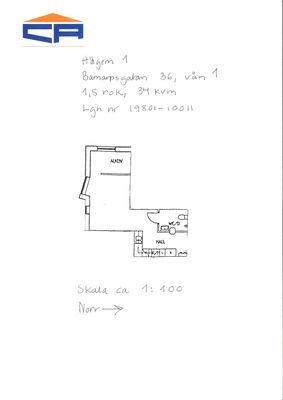 CA
Hägern 1
Barnarpsgatan 36, vån 1
1,5 rok, 34 kvm
Lgh nr 19801-10011
ALKOV
WC/D
HALL
K/F
Skala ca 1:100
Norr